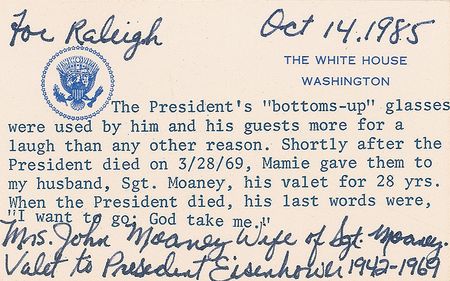 For Raleigh
Oct 14, 1985
THE WHITE HOUSE
WASHINGTON
The President's "bottoms-up" glasses
were used by him and his guests more for a
laugh than any other reason. Shortly after the
President died on 3/28/69, Mamie gave them to
my husband, Sgt. Moaney, his valet for 28 yrs.
When the President died, his last words were,
"I want to go; God take me."
Mrs. John Moaney Wife of Sgt. Moaney.
Valet to President Eisenhower 1942-1969